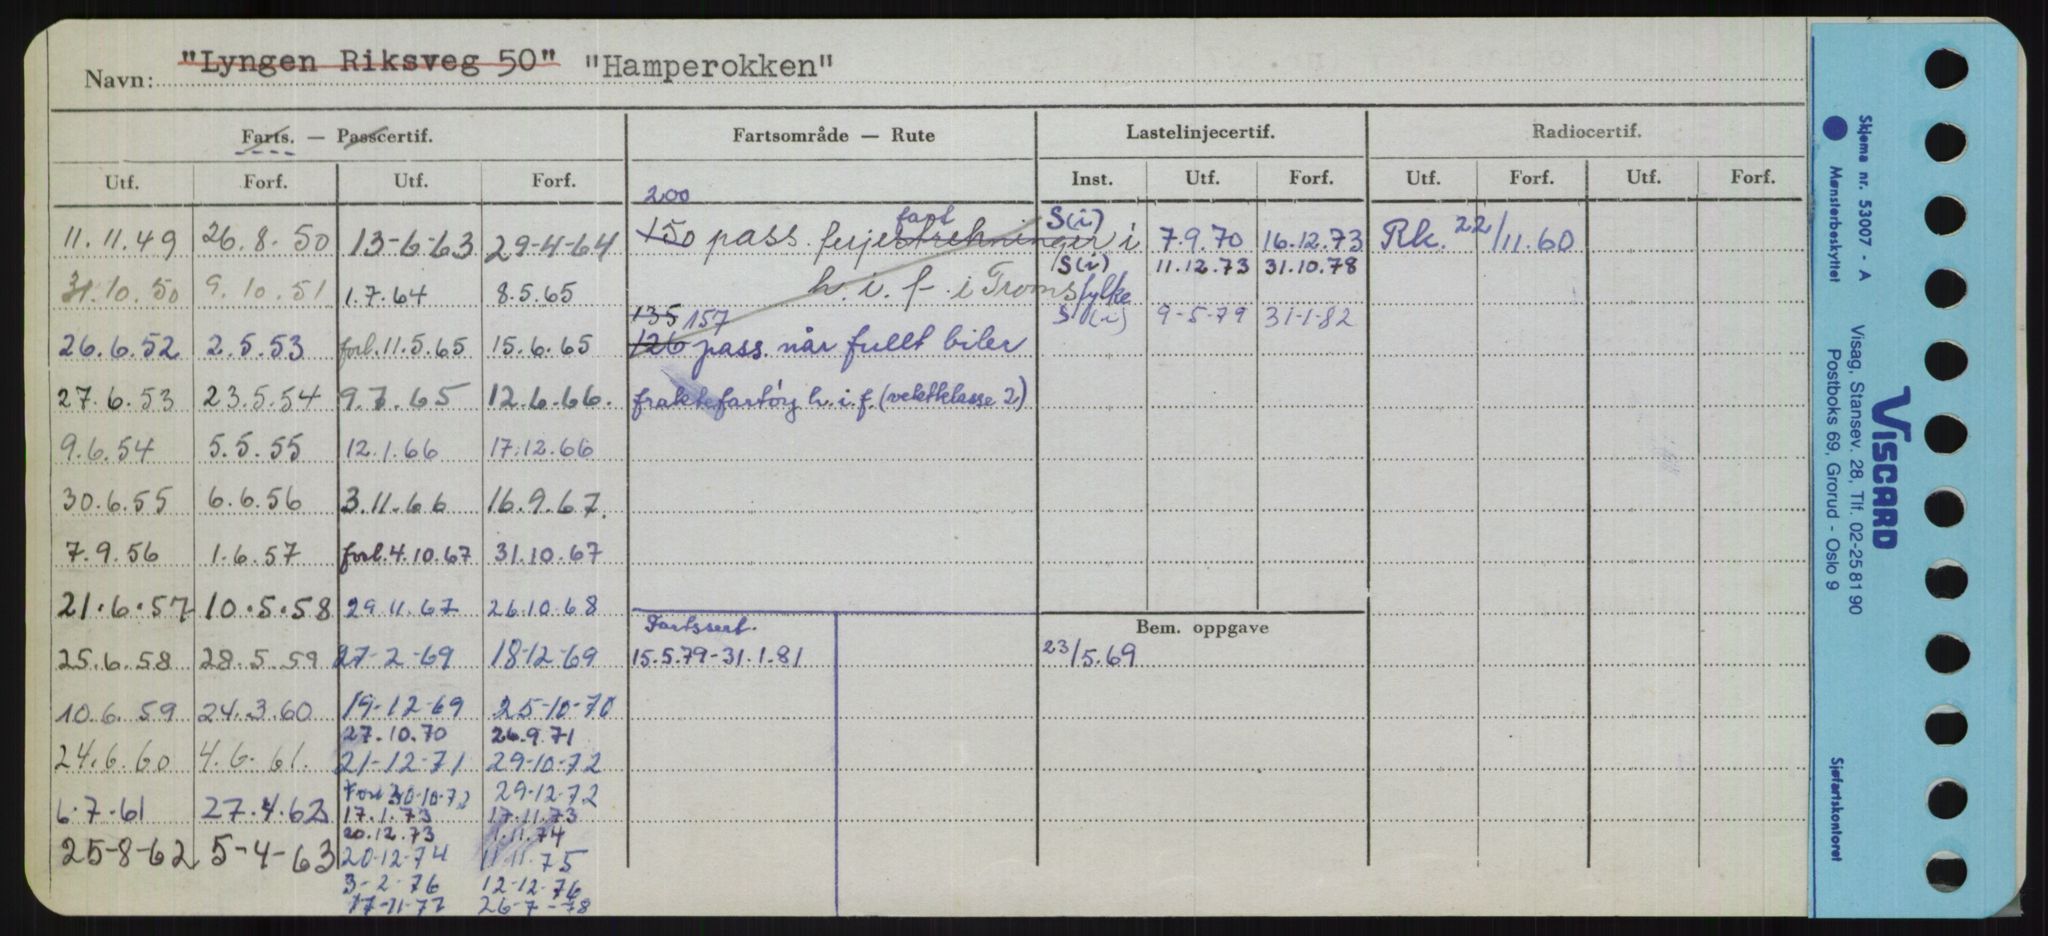 Navn: "Lyngen Riksveg 50" "Hamperokken"
Farts. — Passcertif. Fartsområde — Rute Lastelinjecertif. Radiocertif.
Utf. Forf. Utf. Forf. Inst. Utf. Forf. Utf. Forf. Utf. Forf.
200
fart S(i)
11.11.49 26.8.50 13-6-63 29-4-64 150 pass. ferjestrekninger i 7.9.70 16.12.73 Rk. 22/11.60
S(i) 11.12.73 31.10.78
31.10.50 9.10.51 1.7.64 8.5.65 h.i.f. i Troms fylke
135 157 S(i) 9-5-79 31-1-82
26.6.52 2.5.53 forl. 11.5.65 15.6.65 126 pass når fullt biler
27.6.53 23.5.54 9.7.65 12.6.66. fraktefartøy h.i.f. (vektklasse 2)
9.6.54 5.5.55 12.1.66 17.12.66
30.6.55 6.6.56 3.11.66 16.9.67.
7.9.56 1.6.57 forl. 4.10.67 31.10.67
21.6.57 10.5.58 29.11.67 26.10.68
Fartssert. Bem. oppgave
25.6.58 28.5.59 27-2-69 18-12-69 15.5.79-31.1.81 23/5.69
10.6.59 24.3.60 19-12-69 25-10-70
27.10.70 26.9.71
24.6.60 4.6.61. 21-12-71 29-10-72
Forl 30-10-72 29-12-72
6.7.61 27.4.62 17.1.73 17.11.73
20.12.73 1.11.74
25-8-62 5-4-63 20-12-74 11.11.75
3-2-76 12-12-76
17-11-77 26-7-78
Skjema nr. 53007 - A
Mønsterbeskyttet
VISCARD
Visag, Stansev. 28, Tlf. 02-25 81 90
Postboks 69, Grorud - Oslo 9
Sjøfartskontoret